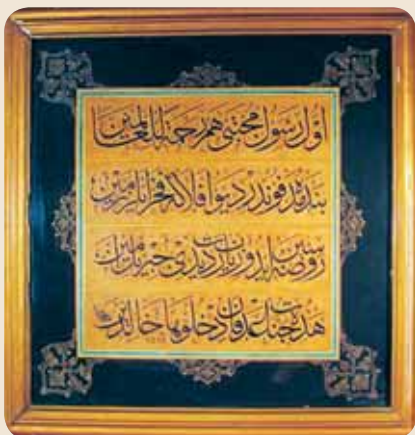 اول رسول مجتبى هم رحمة للعالمين
بنده مدفوندر ديو افلاكه فخر ايلر زمين
روضه سين ايدوب زيارت ديدى جبريل امين
هذه جنات عدن فادخلوها خالدين